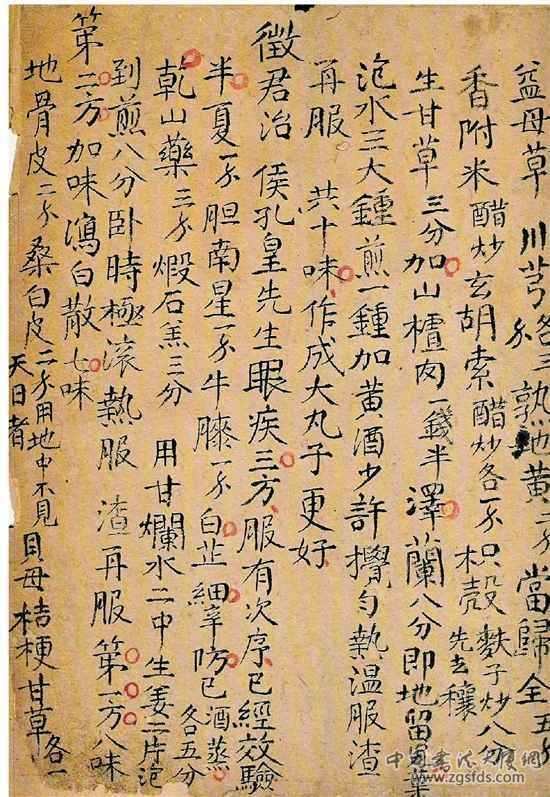 益母草 川芎各三 熟地黄二分 當歸全五分
香附米醋炒玄胡索醋炒各一分枳殼麩子炒八分先去穰
生甘草三分加山楂肉一錢半澤蘭八分即地留
泡水三大鍾煎一鍾加黃酒少許攪勻熱温服渣
再服 共十味作成大丸子更好
徵君治 侯孔皇先生眼疾三方服有次序已經效驗
半夏一分胆南星一分牛膝一分白芷細辛防已酒蒸各五分
乾山藥三分煅石羔三分 用甘爛水二中生姜二片
到煎八分臥時極滚熱服 渣再服 第一方八味
第二方加味瀉白散七味
地骨皮二分桑白皮二分用地中不見天日者貝母桔梗甘草各一
中国书法大厦網
www.zgsfds.com